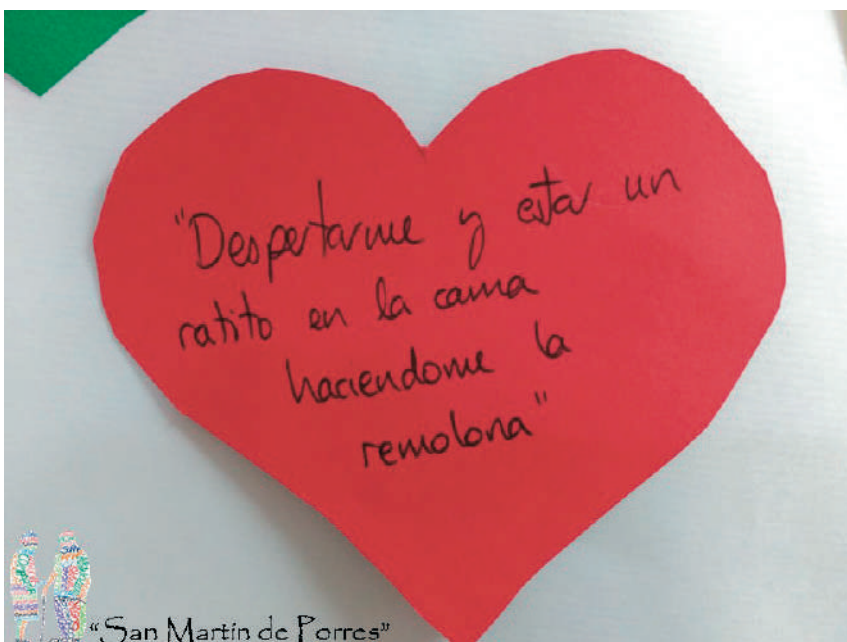 "Despertarme y estar un
ratito en la cama
haciendome la
remolona"
"San Martín de Porres"